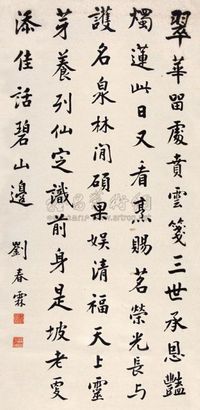 翠華留處賁雲箋三世承恩豔
燭蓮此日又看賜茗榮光長与
護名泉林間碩果娛清福天上靈
芽養列仙定識前身是坡老更
添佳話碧山邊
劉春霖